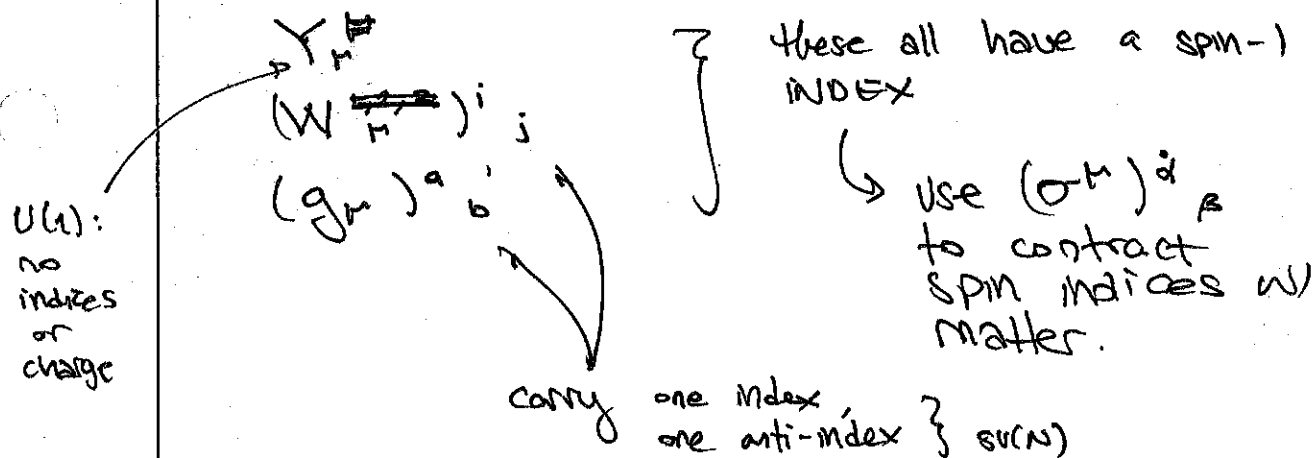 Yμ
(Wμ)ⁱ ⱼ
(gμ)ᵃ b
these all have a spin-1
INDEX
use (σ^μ)^α̇ β
to contract
spin indices w/
matter.
U(1):
no
indices
or
charge
carry one index,
one anti-index } SU(N)